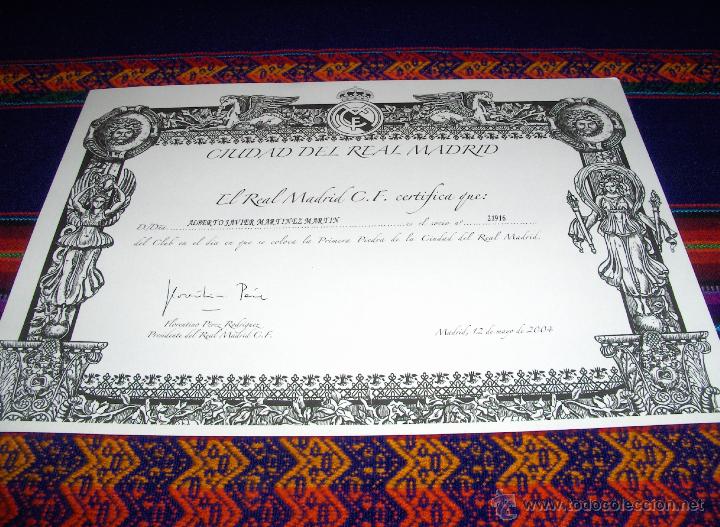 CIUDAD DEL REAL MADRID
El Real Madrid C.F. certifica que:
D/Dña. ALBERTO JAVIER MARTINEZ MARTIN es el socio nº 21916
del Club en el día en que se coloca la Primera Piedra de la Ciudad del Real Madrid.
Florentino Pérez Rodríguez
Presidente del Real Madrid C.F.
Madrid, 12 de mayo de 2004
www.todocoleccion.net